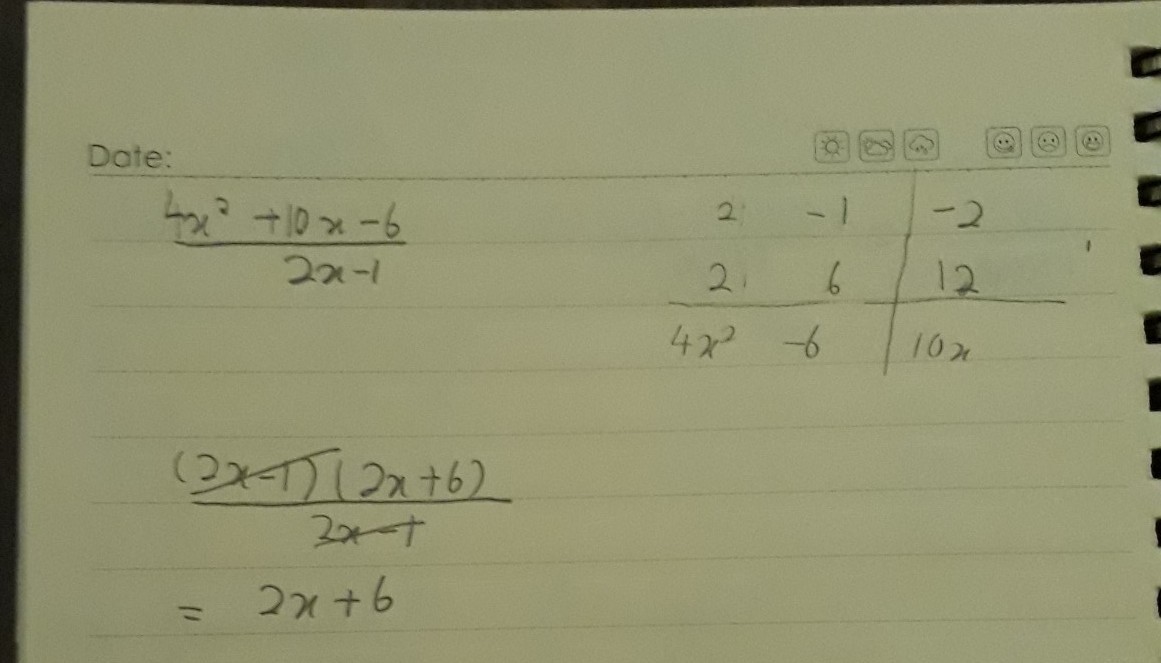 Date:
4x² +10x-6
2x-1
2 -1 | -2
2 6 | 12
4x² -6 | 10x
(2x-1)(2x+6)
2x-1
= 2x+6